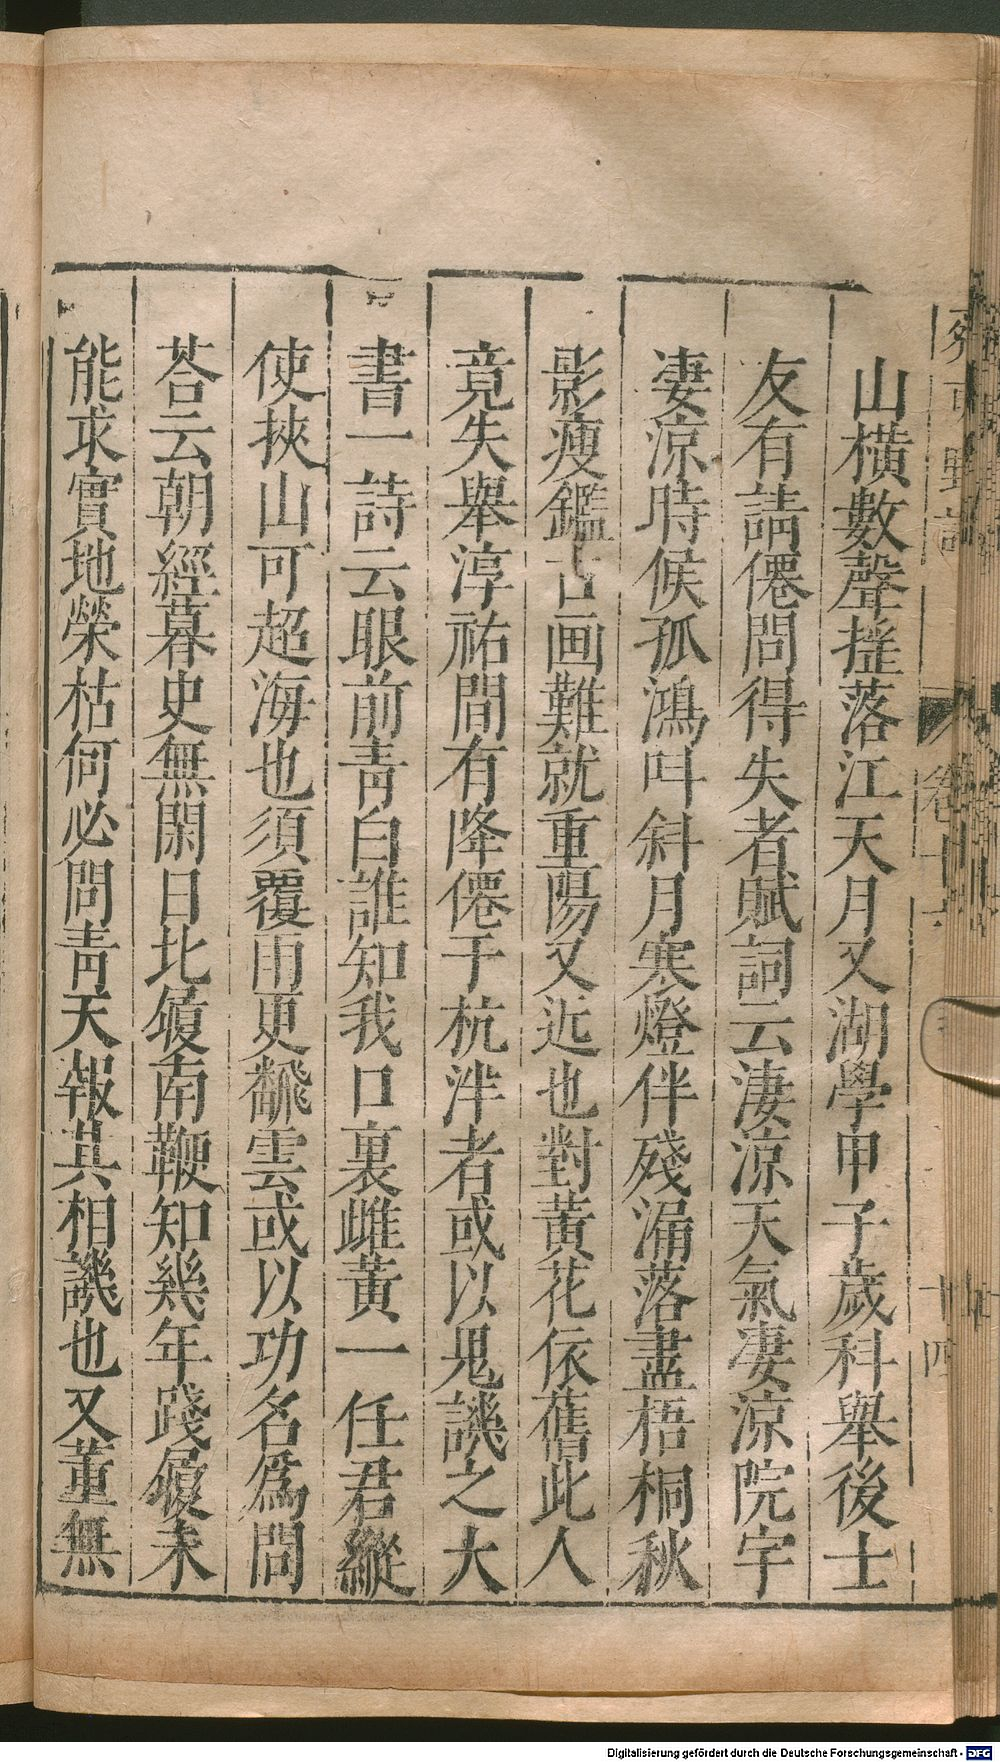 山橫數聲揺落江天月又湖學甲子歲科舉後士
友有請僊問得失者賦詞云淒涼天氣凄涼院宇
凄涼時候孤鴻叫斜月寒燈伴殘漏落盡梧桐秋
影瘦鑑古画難就重陽又近也對黃花依舊此人
竟失舉淳祐間有降僊于杭泮者或以鬼譏之大
書一詩云眼前青白誰知我口裏雌黃一任君縱
使挾山可超海也須覆雨更飜雲或以功名爲問
荅云朝經暮史無閑日北履南鞭知幾年踐履未
能求實地榮枯何必問青天報其相譏也又董無
卷十六
十四
Digitalisierung gefördert durch die Deutsche Forschungsgemeinschaft - DFG